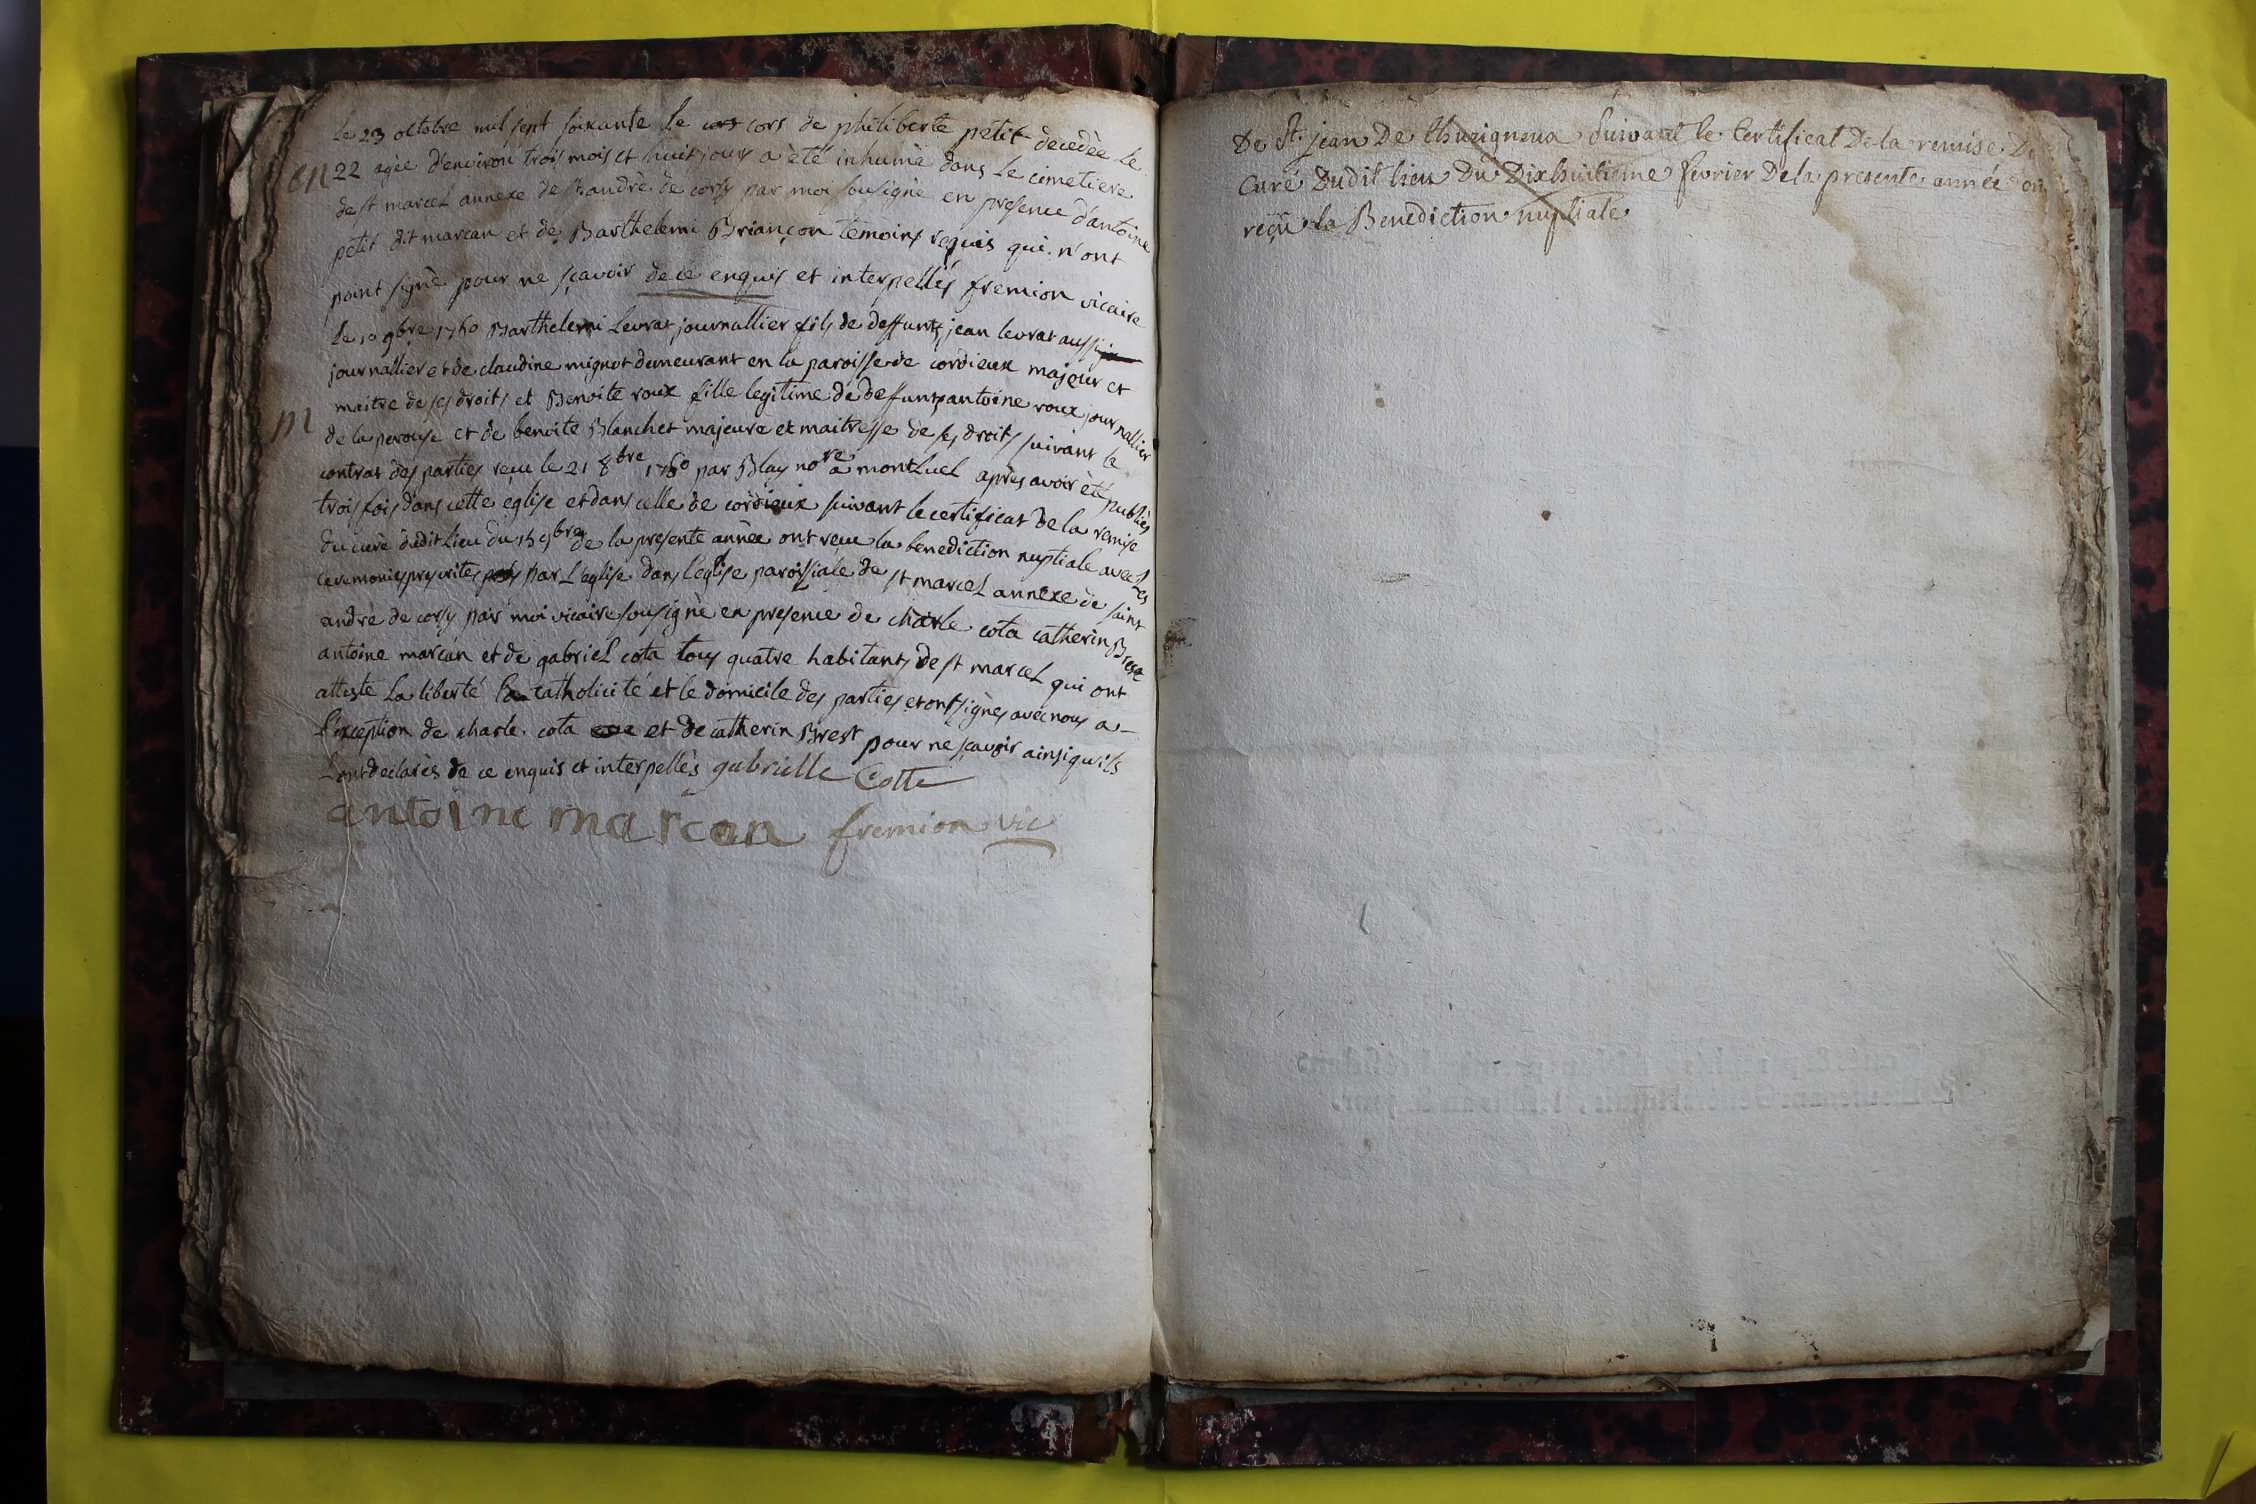 le 23 octobre mil sept soixante le cors de philiberte petit decedèe le
en
22 agèe d'environ trois mois et huit jours a èté inhumè dans le cimetiere
de st marcel annexe de st andrè de corsy par moi sousignè en presence d'antoine
petit dit marcan et de Barthelemi Briançon temoins requis qui n'ont
point signè pour ne sçavoir de ce enquis et interpellés fremion vicaire
le 10 9bre 1760 Barthelemi Levrat journallier fils de deffunts jean levrat aussi
journallier et de claudine mignot demeurant en la paroisse de cordieux majeur et
m
maitre de ses droits et Benoite roux fille legitime de deffunts antoine roux journallier
de la perouse et de benoite Blanchet majeure et maitresse de ses droits suivant le
contrat des parties reçu le 21 8bre 1760 par Blay nore a montluel après avoir èté publiès
trois fois dans cette eglise et dans celle de cordieux suivant le certificat de la remise
du curè dudit lieu du 9bre de la presente annèe ont reçu la benediction nuptiale avec les
ceremonies prescrites par L'eglise dans l'eglise paroissiale de st marcel annexe de saint
andrè de corsy par moi vicaire sousignè en presence de charle cota catherin Brest
antoine marcan et de gabriel cota tous quatre habitants de st marcel qui ont
atteste la liberté la catholicité et le domicile des parties et ont signès avec nous a
l'exception de charle cota et de catherin Brest pour ne sçavoir ainsi qu'ils
L'ont declarès de ce enquis et interpellès gabrielle Cotte
antoine marcan fremion vic
De St. jean De thurigneux suivant le Certificat De la remise Du
Curé Dudit lieu Du Dixhuitieme fevrier De la presente année ont
reçu la Benediction nuptiale